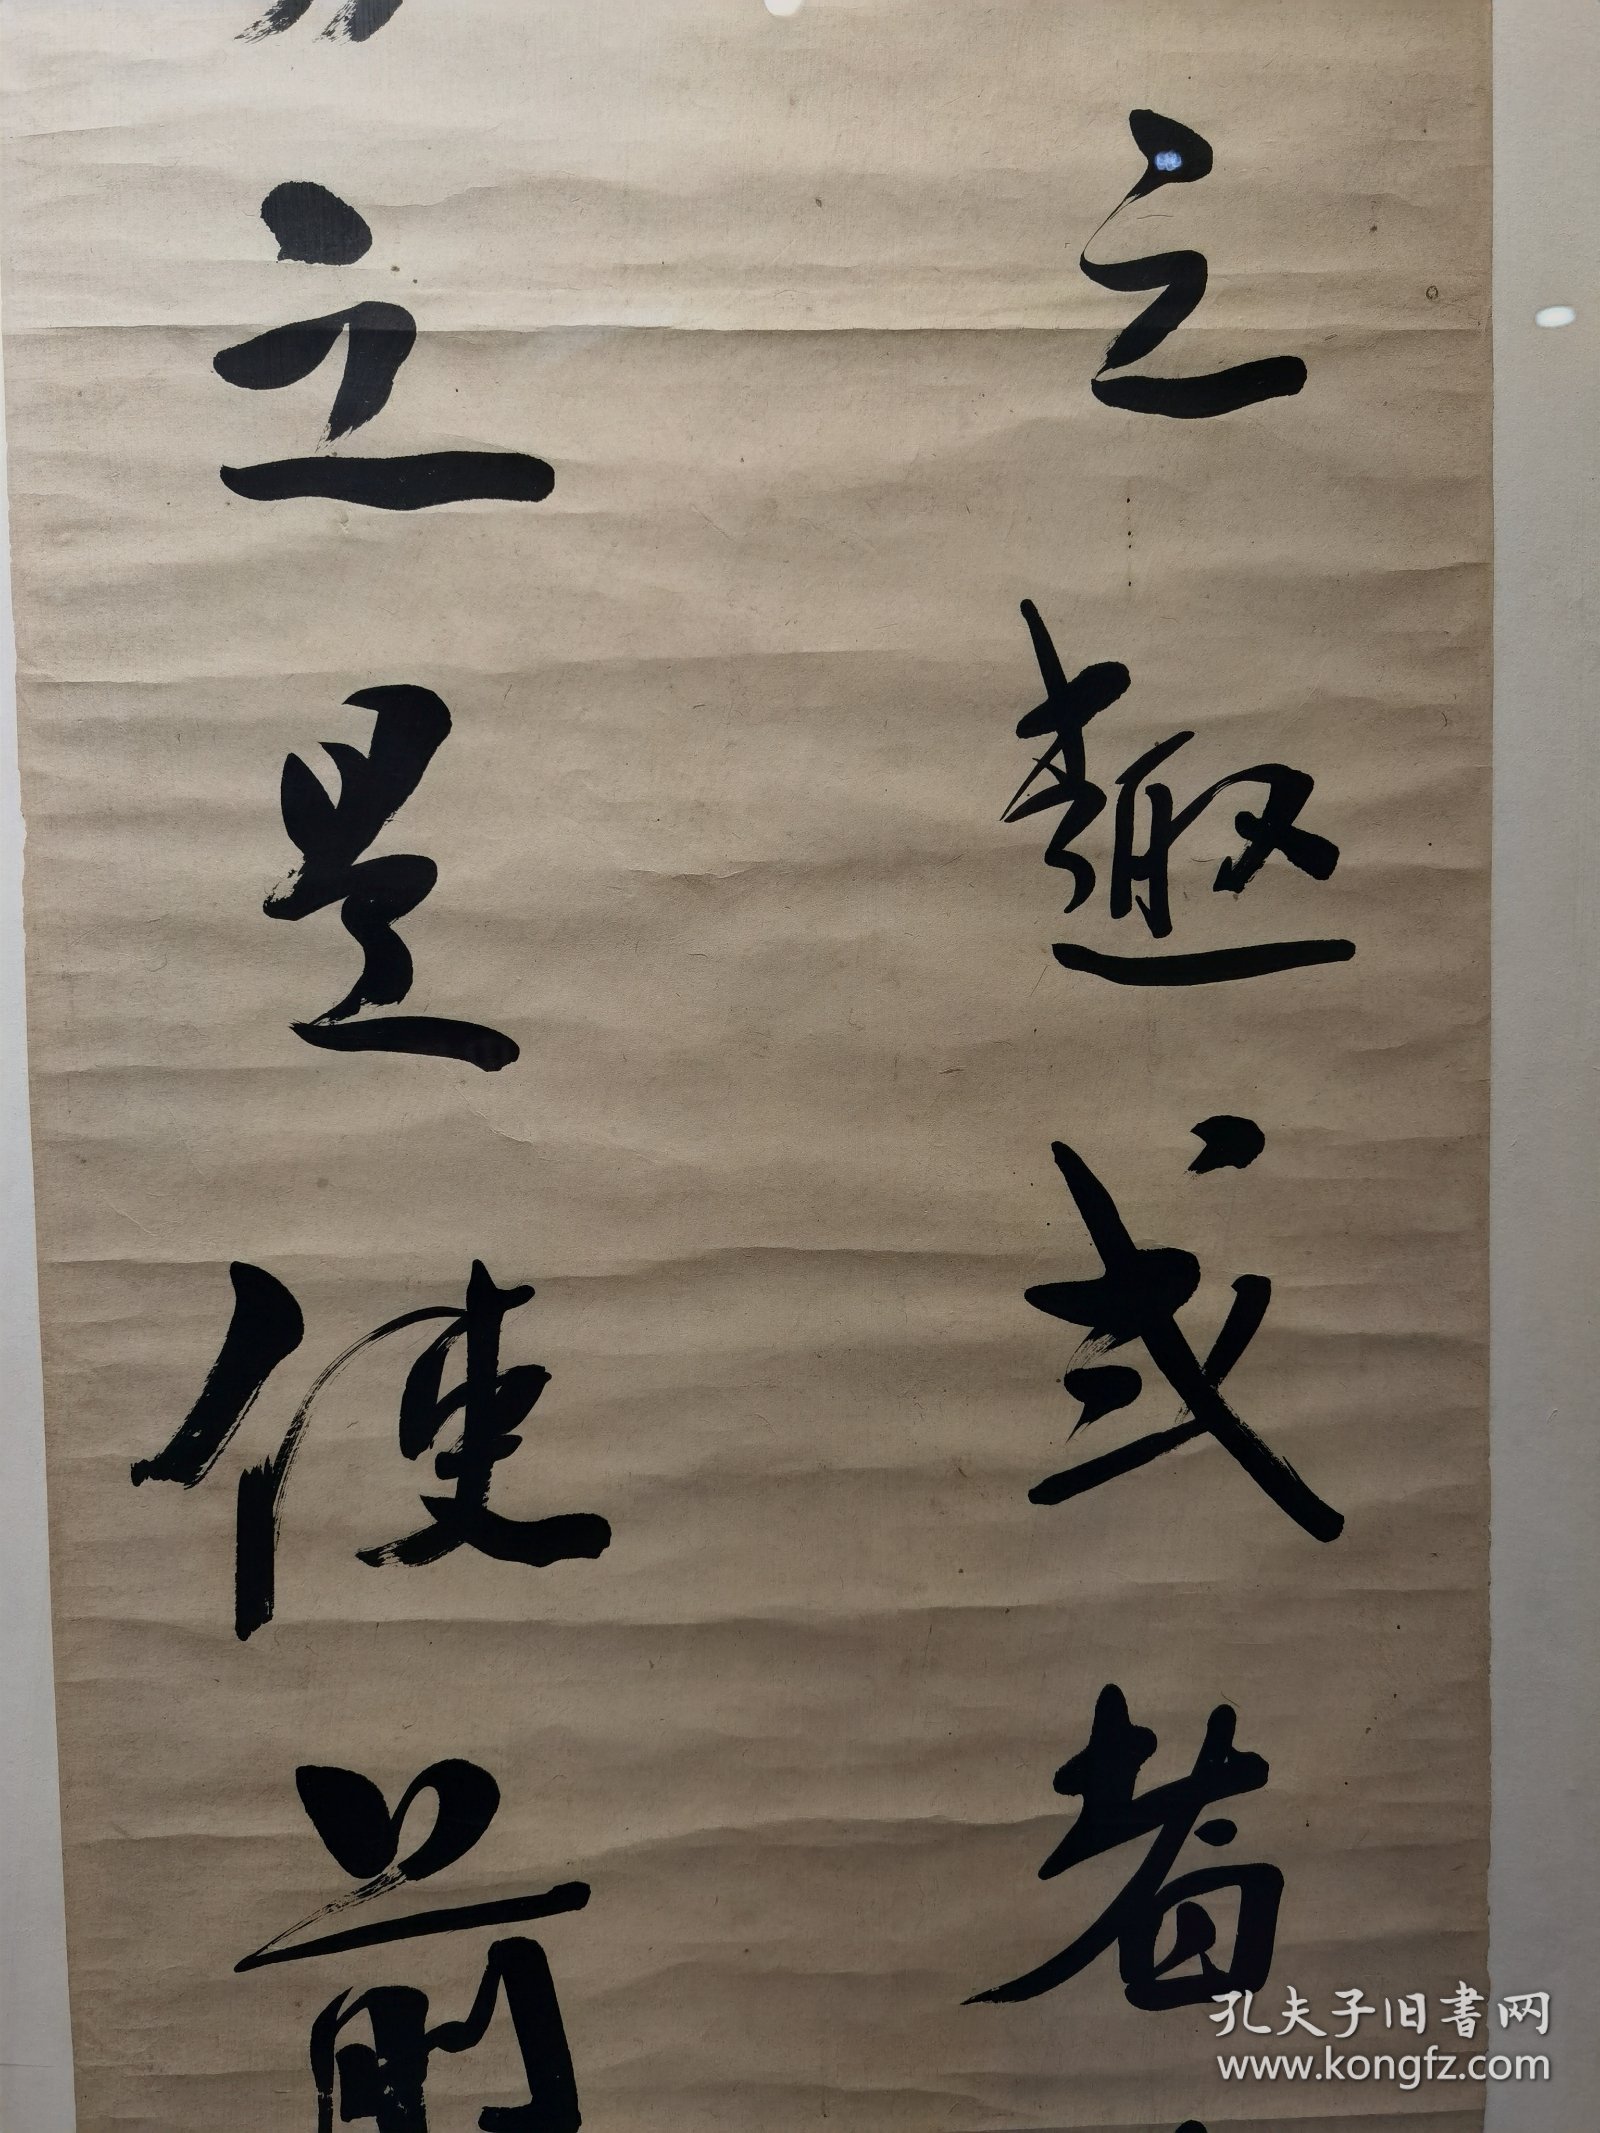 之趣或者
之是使前
孔夫子旧書网
www.kongfz.com